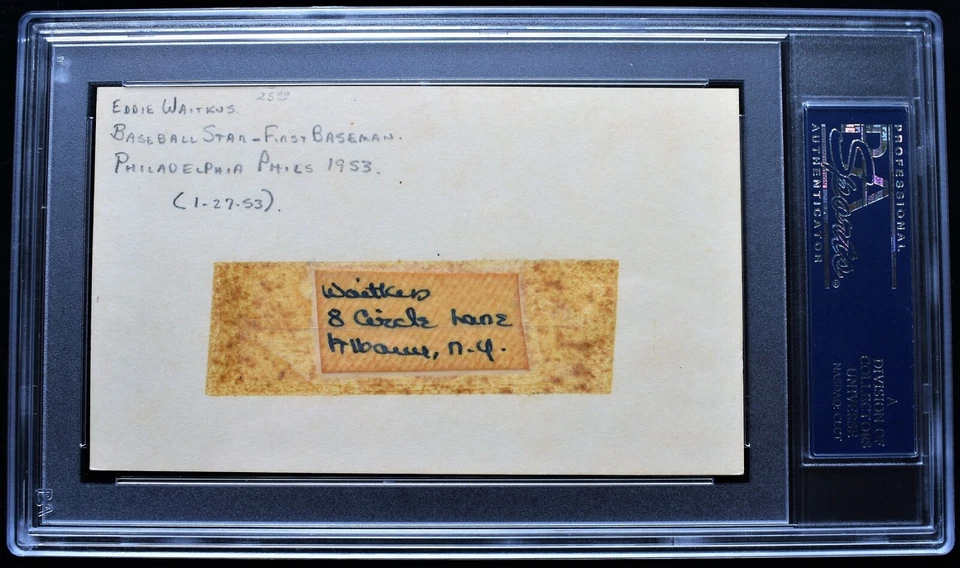 EDDIE WAITKUS. 25⁰⁰
BASEBALL STAR - FIRST BASEMAN.
PHILADELPHIA PHILS 1953.
(1-27-53).
Waitkus
8 Circle Lane
Albany, N.Y.
PROFESSIONAL
PSA
AUTHENTICATOR
A
DIVISION OF
COLLECTORS
UNIVERSE
NASDAQ: CLCT
PSA